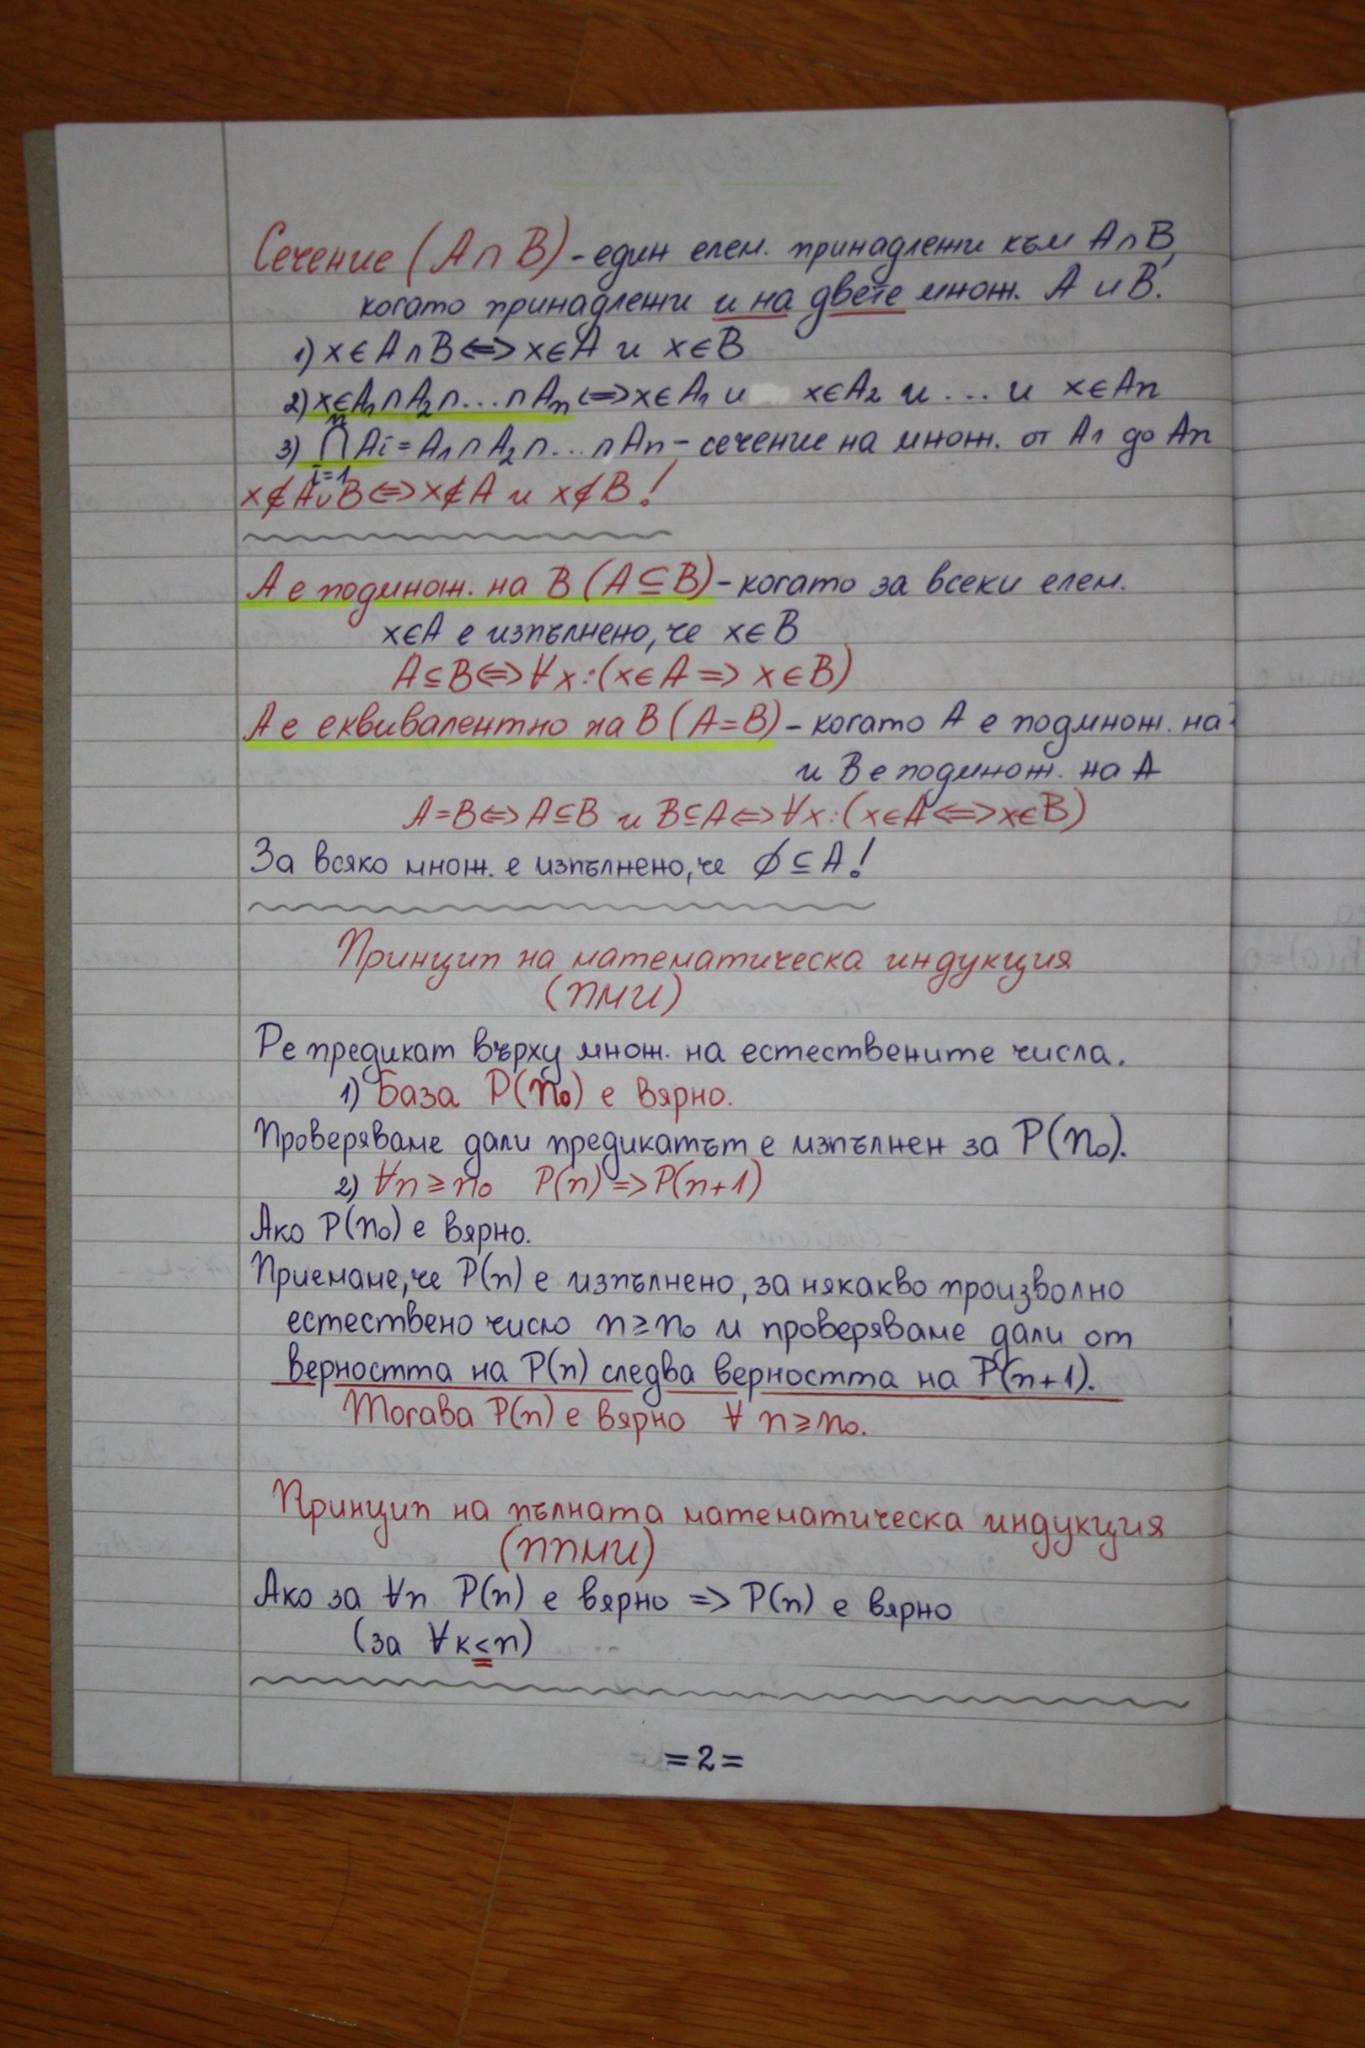 Сечение (A∩B) - един елем. принадлежи към A∩B,
когато принадлежи и на двете множ. A и B.
1) x∈A∩B⇔x∈A и x∈B
2) x∈A₁∩A₂∩...∩Aₙ⇔x∈A₁ и x∈A₂ и ... и x∈Aₙ
n
3) ⋂ Ai = A₁∩A₂∩...∩An - сечение на множ. от A₁ до An
i=1
x∉A∪B⇔x∉A и x∉B!
A е подмнож. на B (A⊆B) - когато за всеки елем.
x∈A е изпълнено, че x∈B
A⊆B⇔∀x:(x∈A⇒x∈B)
A е еквивалентно на B (A=B) - когато A е подмнож. на
и B е подмнож. на A
A=B⇔A⊆B и B⊆A⇔∀x:(x∈A⇔x∈B)
За всяко множ. е изпълнено, че ∅⊆A!
Принцип на математическа индукция
(ПМИ)
P е предикат върху множ. на естествените числа.
1) База P(n₀) е вярно.
Проверяваме дали предикатът е изпълнен за P(n₀).
2) ∀n≥n₀ P(n)⇒P(n+1)
Ако P(n₀) е вярно.
Приемаме, че P(n) е изпълнено, за някакво произволно
естествено число n≥n₀ и проверяваме дали от
верността на P(n) следва верността на P(n+1).
Тогава P(n) е вярно ∀ n≥n₀.
Принцип на пълната математическа индукция
(ППМИ)
Ако за ∀n P(n) е вярно ⇒ P(n) е вярно
(за ∀k<n)
=2=